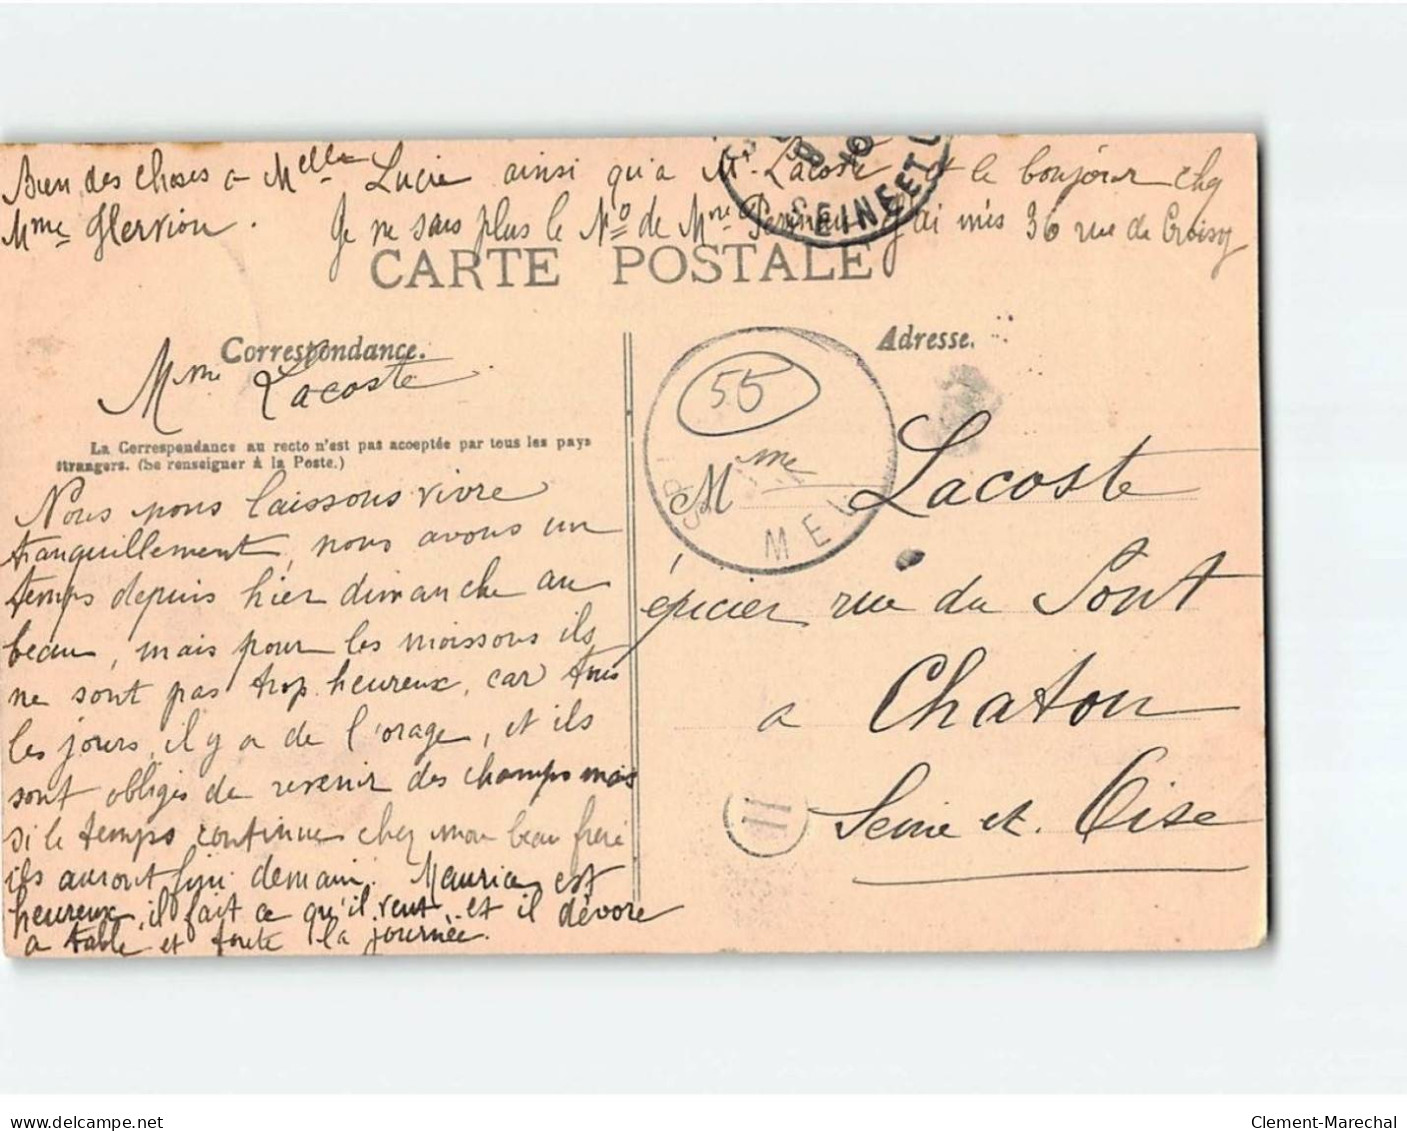 Bien des choses a Melle Lucie ainsi qu'a M. Lacoste et le bonjour chez
Mme Hervion. Je ne sais plus le No de Mme J'ai mis 36 rue de Croissy
CARTE POSTALE
Correspondance.
Adresse.
Mme Lacoste
La Correspondance au recto n'est pas acceptée par tous les pays
étrangers. (Se renseigner à la Poste.)
Nous nous laissons vivre
tranquillement, nous avons un
temps depuis hier dimanche au
beau, mais pour les moissons ils
ne sont pas trop heureux, car tous
les jours, il y a de l'orage, et ils
sont obligés de revenir des champs mais
si le temps continue chez mon beau frère
ils auront fini demain. Maurice est
heureux, il fait ce qu'il veut, et il dévore
a table et toute la journée.
SEINE ET
55
MEL
Mme Lacoste
épicier rue du Pont
a Chatou
Seine et. Oise
11
www.delcampe.net
Clement-Marechal